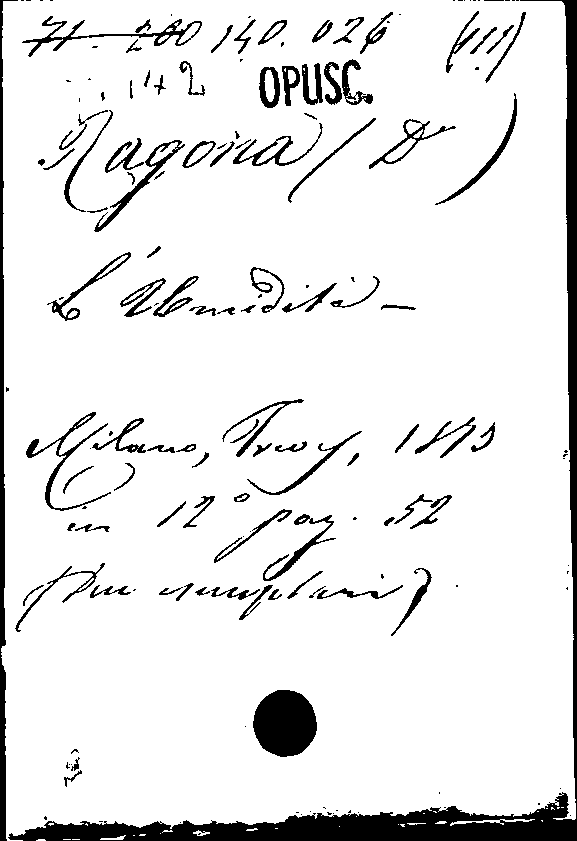 71. 200 140. 026 (III)
142 OPUSC.
Ragona (D)
L'Umidità -
Milano, Trevy, 1873
in 12° pag. 52
(Due esemplari)